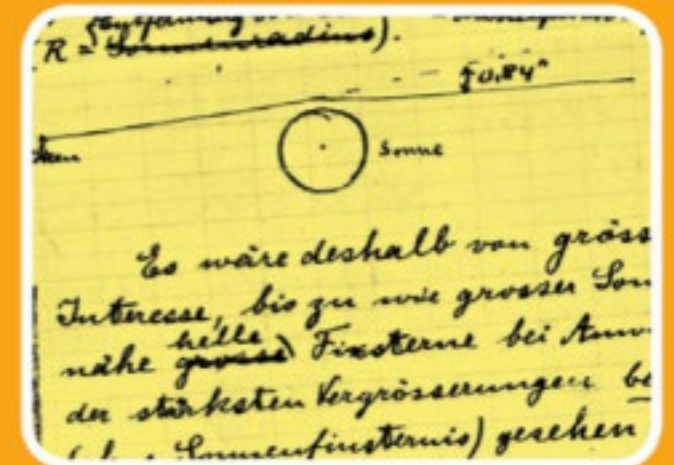 R = Sonnenradius).
0,84"
Sonne
Es wäre deshalb von gröss
Interesse, bis zu wie grosser Son
helle
nähe grosse Fixsterne bei Anw
der stärksten Vergrösserungen be
Sonnenfinsternis) gesehen